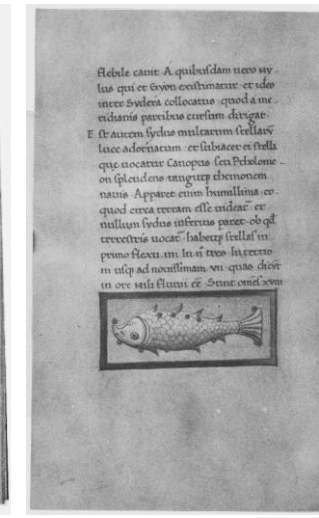 flebile canit A quibusdam uero Ny
lus qui et Gyon existimatur et ideo
inter Sydera collocatus quod a me
ridianis partibus cursum dirigat
E st autem sydus multarum stellarũ
luce adornatum et subiacet ei stella
que uocatur Canopus seu Ptholome
on splendens tangitq themonem
nauis Apparet enim humillima eo
quod circa terram esse uideat᷑ et
nullum sydus inferius paret ob qđ
terrestris uocat᷑ habetq stellas in
primo flexu IIII In II tres In tertio
usq ad nouissimam VII quas dicũt
in ore Nili fluuii eē Sunt omēs XVIII